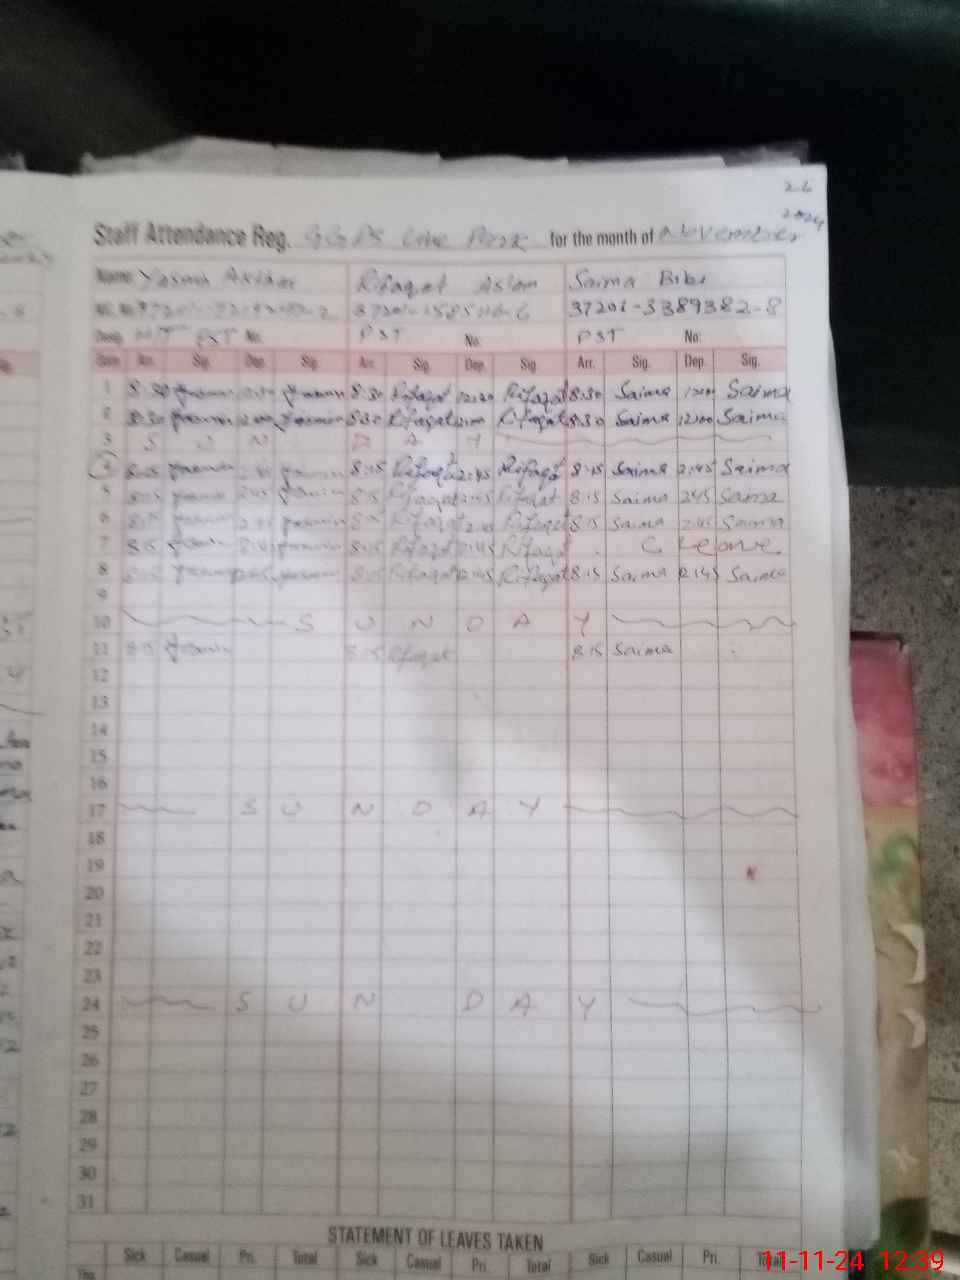 2024
Staff Attendance Reg. GGPS for the month of November
Name Yasmin Akhtar Rifaqat Aslam Saima Bibi
37201-3389382-8
PST No: PST No: PST No:
Date Arr. Sig. Dep. Sig. Arr. Sig. Dep. Sig. Arr. Sig. Dep. Sig.
1 8:30 Yasmin Yasmin 8:30 Rifaqat 12:00 Rifaqat 8:30 Saima 12:00 Saima
2 8:30 Yasmin 12:00 Yasmin 8:30 Rifaqat 12:00 Rifaqat 8:30 Saima 12:00 Saima
3 S U N D A Y
4 8:15 Yasmin 2:45 Yasmin 8:15 Rifaqat 2:45 Rifaqat 8:15 Saima 2:45 Saima
5 8:15 Yasmin 2:45 Yasmin 8:15 Rifaqat 2:45 Rifaqat 8:15 Saima 2:45 Saima
6 8:15 Yasmin 2:45 Yasmin 8:15 Rifaqat 2:45 Rifaqat 8:15 Saima 2:45 Saima
7 8:15 Yasmin 2:45 Yasmin 8:15 Rifaqat 2:45 Rifaqat C Leave
8 8:15 Yasmin 12:45 Yasmin 8:15 Rifaqat 12:45 Rifaqat 8:15 Saima 12:45 Saima
9
10 S U N D A Y
11 8:15 Yasmin 8:15 Rifaqat 8:15 Saima
12
13
14
15
16
17 S U N D A Y
18
19
20
21
22
23
24 S U N D A Y
25
26
27
28
29
30
31
STATEMENT OF LEAVES TAKEN
Sick Casual Pri. Total Sick Casual Pri. Total Sick Casual Pri. Total
11-11-24 12:39